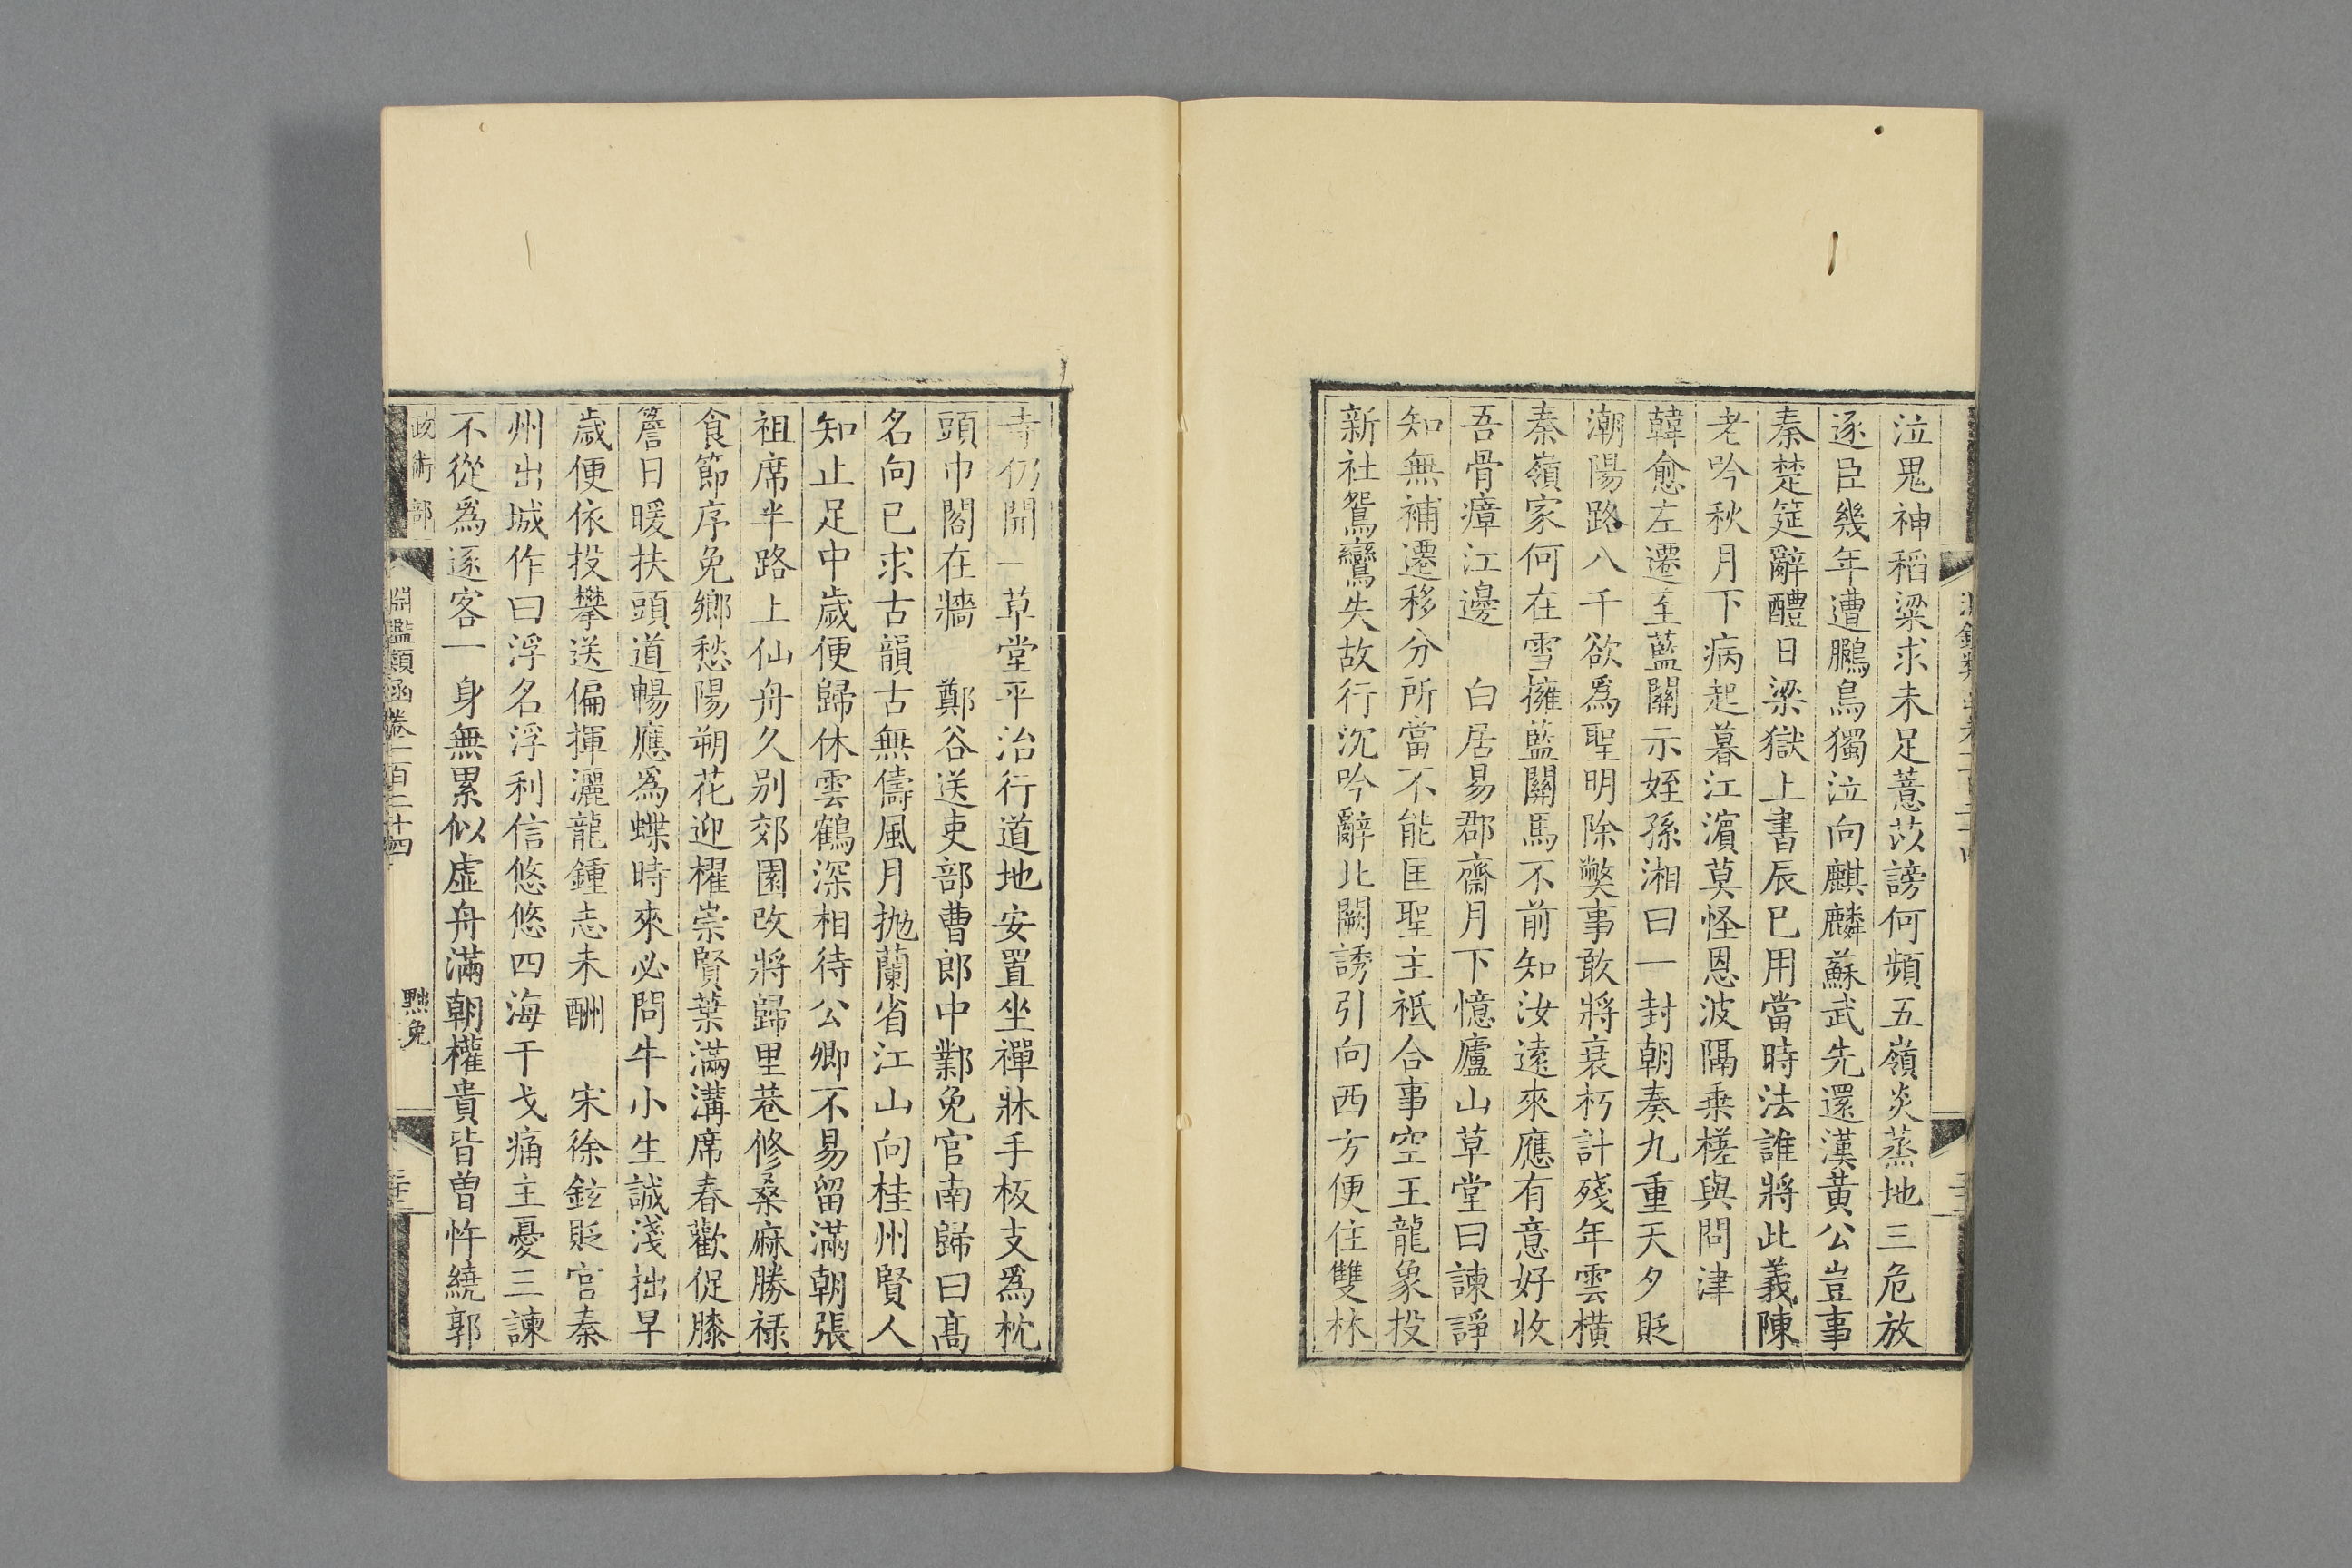 泣鬼神稻粱求未足薏苡謗何頻五嶺炎蒸地三危放
逐臣幾年遭鵩鳥獨泣向麒麟蘇武先還漢黃公豈事
秦楚筵辭醴日梁獄上書辰已用當時法誰將此義陳
老吟秋月下病起暮江濵莫怪恩波隔乗槎與問津
韓愈左遷至藍關示姪孫湘曰一封朝奏九重天夕貶
潮陽路八千欲爲聖明除弊事敢將衰朽計殘年雲橫
秦嶺家何在雪擁藍關馬不前知汝逺來應有意好收
吾骨瘴江邊 白居易郡齋月下憶廬山草堂曰諫諍
知無補遷移分所當不能匡聖主衹合事空王龍象投
新社鴛鸞失故行沉吟辭北闕誘引向西方便住雙林
寺仍開一草堂平治行道地安置坐禪牀手板支爲枕
頭巾閣在牆 鄭谷送吏部曹郎中鄴免官南歸曰髙
名向已求古韻古無儔風月抛蘭省江山向桂州賢人
知止足中歲便歸休雲鶴深相待公卿不易留滿朝張
祖席半路上仙舟久别郊園改將歸里巷修桑麻勝禄
食節序免鄉愁陽朔花迎櫂崇賢葉滿溝席春歡促膝
簷日暖扶頭道暢應爲蝶時來必問牛小生誠淺拙早
歲便依投攀送偏揮灑龍鍾志未酬 宋徐鉉貶官秦
州出城作曰浮名浮利信悠悠四海干戈痛主憂三諫
不從爲逐客一身無累似虛舟滿朝權貴皆曾忤繞郭
政術部
淵鑑類函卷一百二十四
黜免